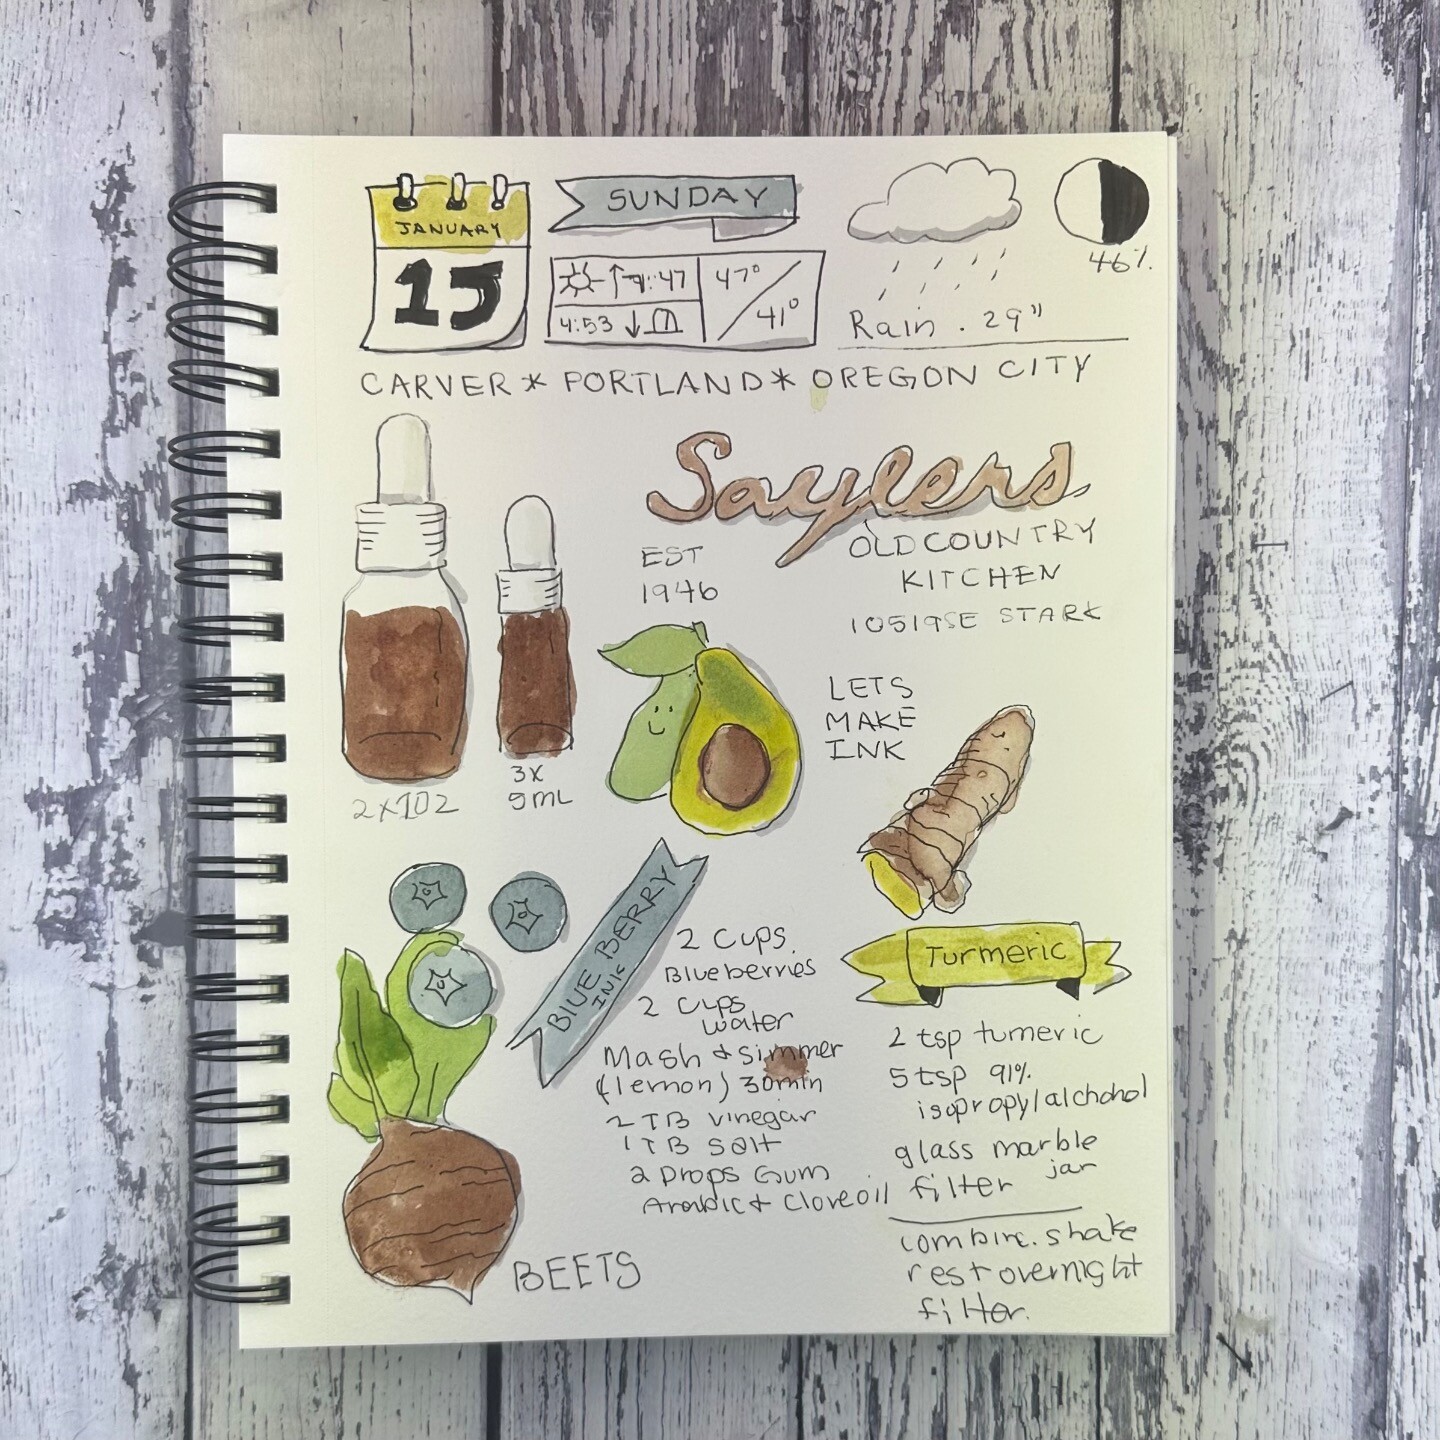 JANUARY
15
SUNDAY
7:47
47°
4:53
41°
Rain .29"
46%
CARVER * PORTLAND * OREGON CITY
Saylers
OLD COUNTRY
KITCHEN
10519 SE STARK
EST
1946
LETS
MAKE
INK
2X1OZ
3X
5ML
BLUE BERRY
INK
2 Cups
Blueberries
2 Cups
water
Mash & simmer
(lemon) 30min
2 TB vinegar
1 TB Salt
2 Drops Gum
Arabic & Clove oil
BEETS
Turmeric
2 tsp tumeric
5 tsp 91%
isopropyl alchohol
glass marble
jar
filter
combine. shake
rest overnight
filter.